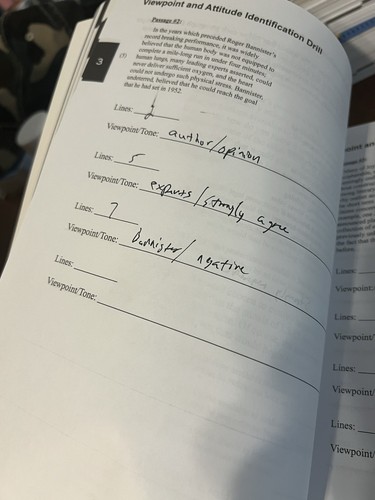 Viewpoint and Attitude Identification Drill
Passage #2:
In the years which preceded Roger Bannister's
record breaking performance, it was widely
believed that the human body was not equipped to
complete a mile-long run in under four minutes;
(5) human lungs, many leading experts asserted, could
never deliver sufficient oxygen, and the heart
could not undergo such physical stress. Bannister,
undeterred, believed that he could reach the goal
that he had set in 1952.
3
Lines: 2
Viewpoint/Tone: author/opinion
Lines: 5
Viewpoint/Tone: experts/strongly agree
Lines: 7
Viewpoint/Tone: Bannister/negative
Lines:
Viewpoint/Tone:
Lines:
Viewpoint:
Lines:
Viewpoint/
Lines:
Viewpoint/
Lines:
Viewpoint/